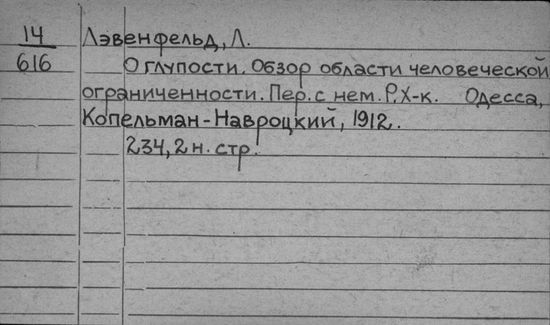 14 Лэвенфельд, Л.
616 О глупости. Обзор области человеческой
ограниченности. Пер. с нем. Р. Х-к. Одесса,
Копельман-Навроцкий, 1912.
234, 2 н. стр.